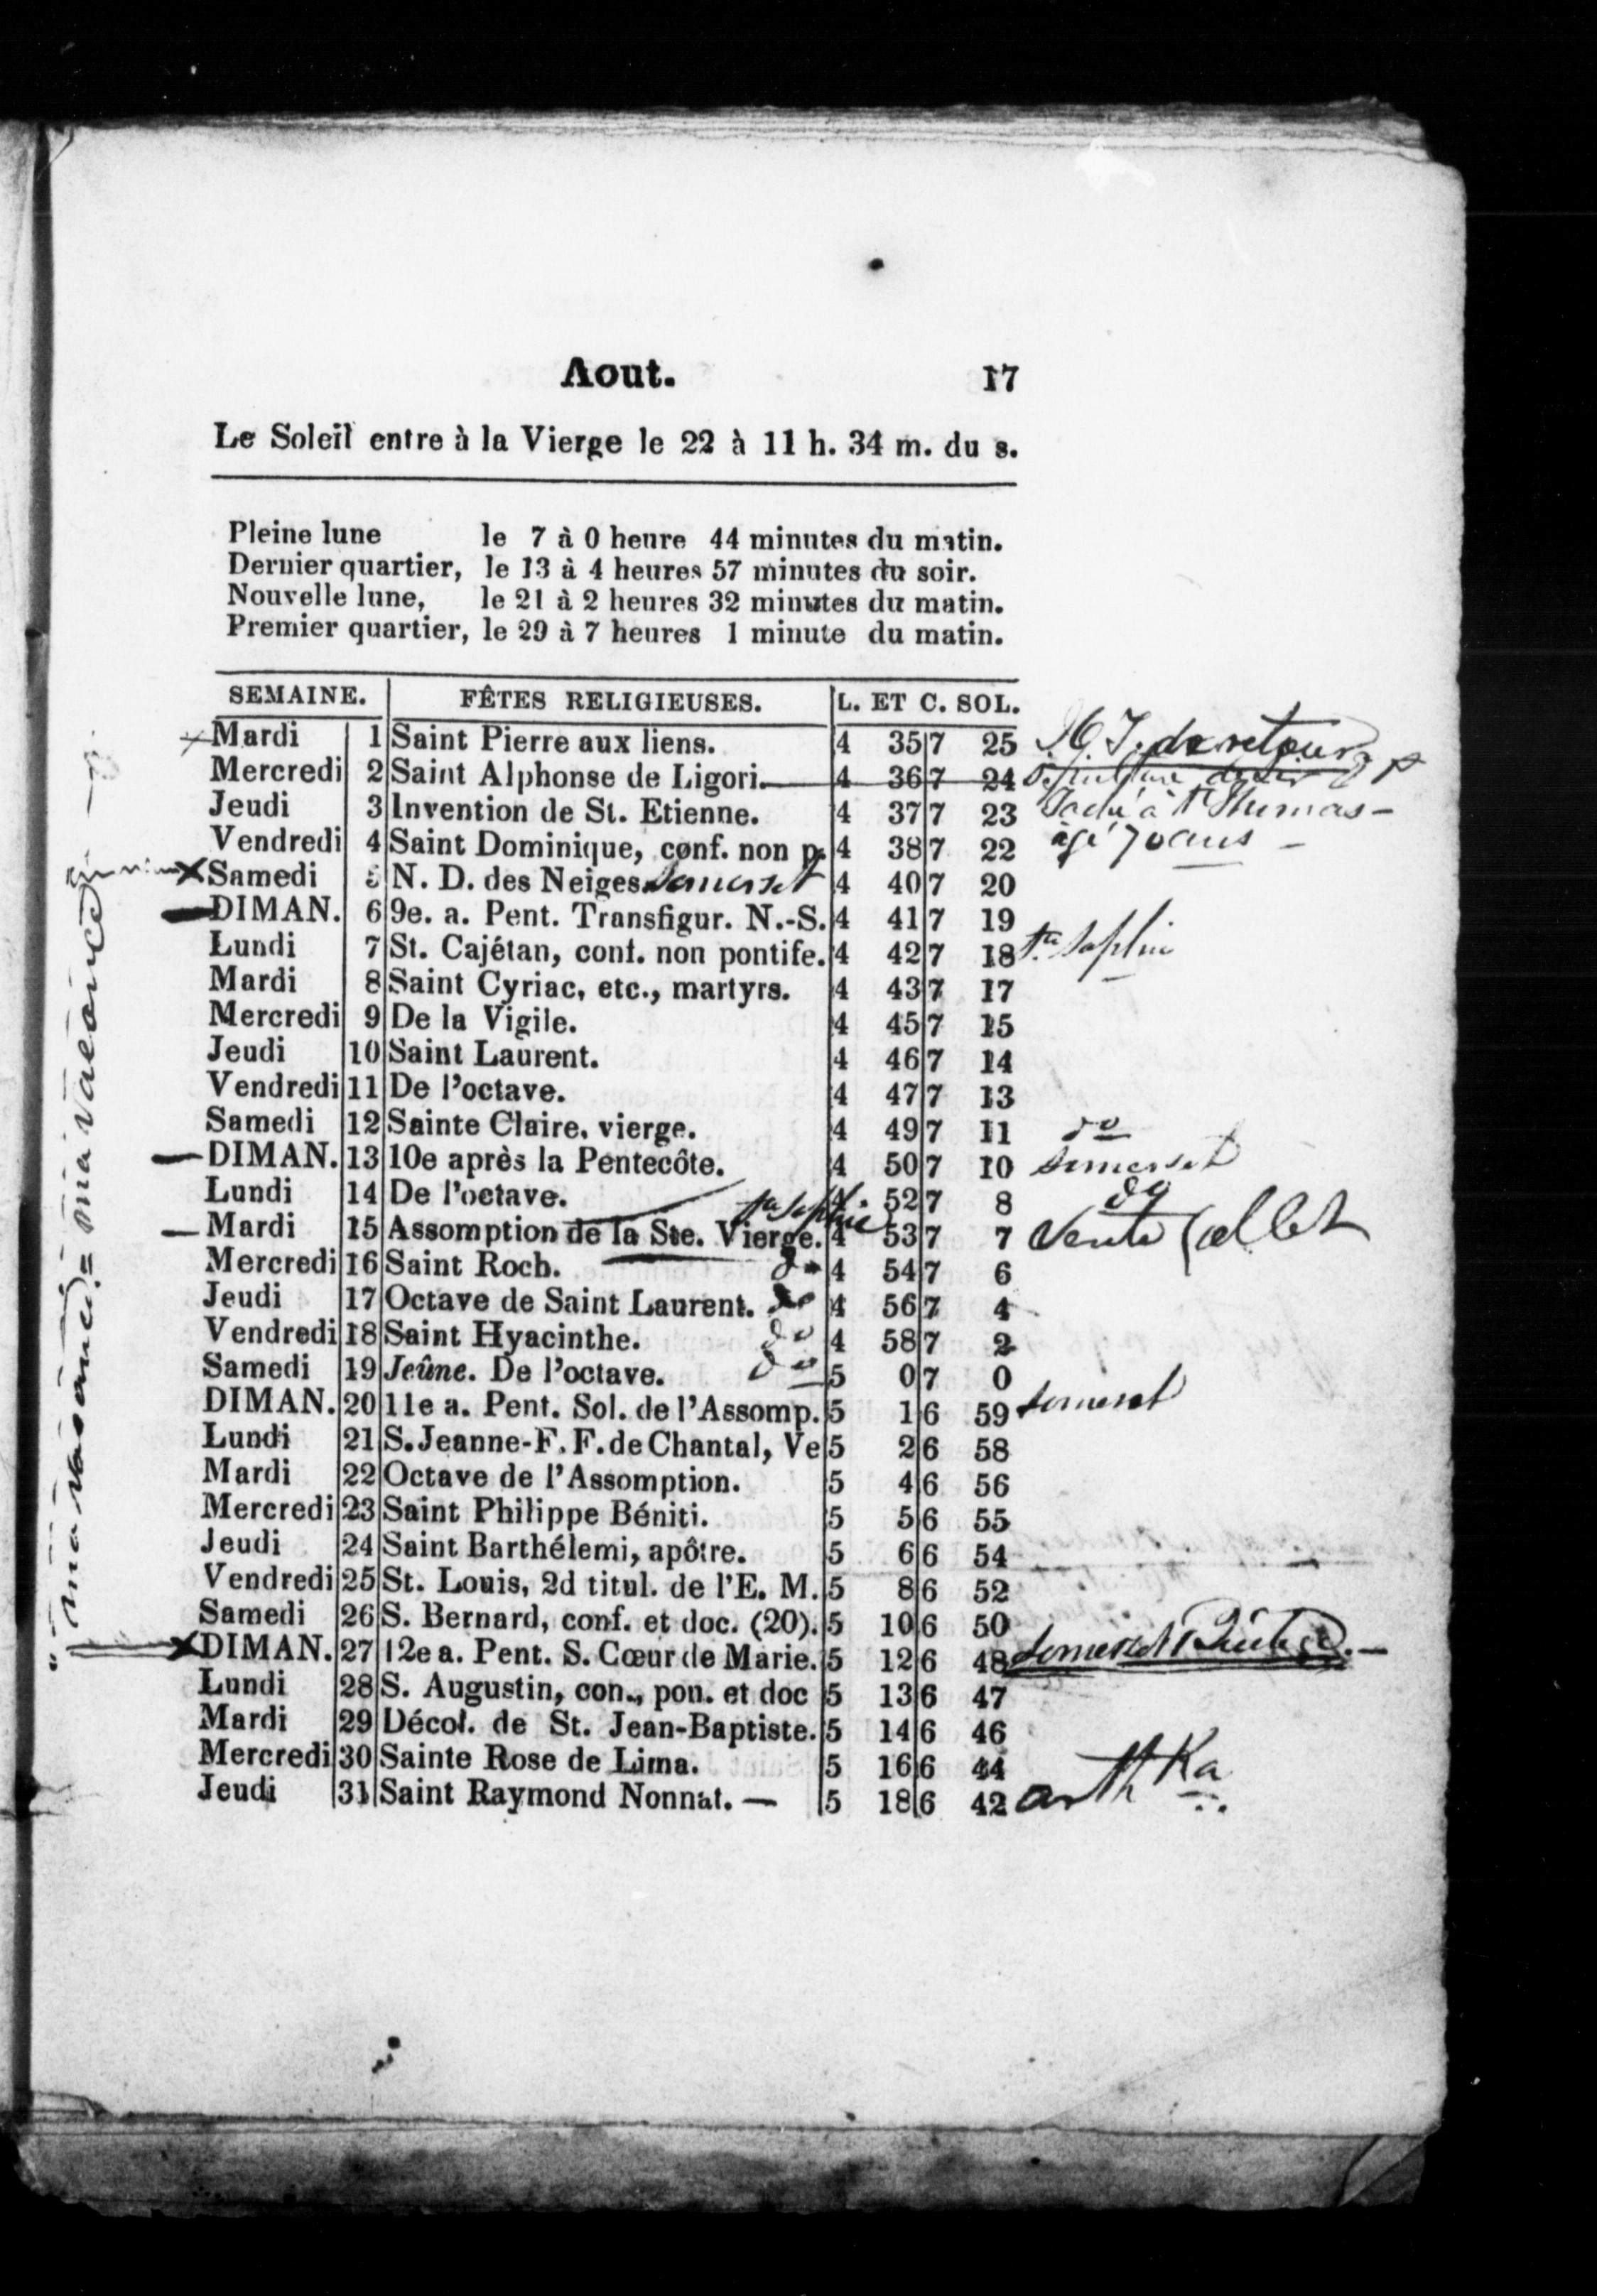 Aout. 17
Le Soleil entre à la Vierge le 22 à 11 h. 34 m. du s.
Pleine lune le 7 à 0 heure 44 minutes du matin.
Dernier quartier, le 13 à 4 heures 57 minutes du soir.
Nouvelle lune, le 21 à 2 heures 32 minutes du matin.
Premier quartier, le 29 à 7 heures 1 minute du matin.
SEMAINE. FÊTES RELIGIEUSES. L. ET C. SOL.
Mardi 1 Saint Pierre aux liens. 4 35 7 25 de retour
Mercredi 2 Saint Alphonse de Ligori. 4 36 7 24
Jeudi 3 Invention de St. Etienne. 4 37 7 23 à St Thomas –
Vendredi 4 Saint Dominique, conf. non p. 4 38 7 22 âgé 70 ans –
Samedi 5 N. D. des Neiges. Somerset 4 40 7 20
DIMAN. 6 9e. a. Pent. Transfigur. N.-S. 4 41 7 19
Lundi 7 St. Cajétan, conf. non pontife. 4 42 7 18 Ste Sophie
Mardi 8 Saint Cyriac, etc., martyrs. 4 43 7 17
Mercredi 9 De la Vigile. 4 45 7 15
Jeudi 10 Saint Laurent. 4 46 7 14
Vendredi 11 De l'octave. 4 47 7 13
Samedi 12 Sainte Claire, vierge. 4 49 7 11 do
DIMAN. 13 10e après la Pentecôte. 4 50 7 10 Somerset
Lundi 14 De l'octave. 4 52 7 8 do
Mardi 15 Assomption de la Ste. Vierge. Ste Sophie 4 53 7 7 Vente
Mercredi 16 Saint Roch. do 4 54 7 6
Jeudi 17 Octave de Saint Laurent. do 4 56 7 4
Vendredi 18 Saint Hyacinthe. do 4 58 7 2
Samedi 19 Jeûne. De l'octave. do 5 0 7 0
DIMAN. 20 11e a. Pent. Sol. de l'Assomp. 5 1 6 59 Somerset
Lundi 21 S. Jeanne-F. F. de Chantal, Ve 5 2 6 58
Mardi 22 Octave de l'Assomption. 5 4 6 56
Mercredi 23 Saint Philippe Béniti. 5 5 6 55
Jeudi 24 Saint Barthélemi, apôtre. 5 6 6 54
Vendredi 25 St. Louis, 2d titul. de l'E. M. 5 8 6 52
Samedi 26 S. Bernard, conf. et doc. (20). 5 10 6 50
DIMAN. 27 12e a. Pent. S. Cœur de Marie. 5 12 6 48 Somerset
Lundi 28 S. Augustin, con., pon. et doc 5 13 6 47
Mardi 29 Décol. de St. Jean-Baptiste. 5 14 6 46
Mercredi 30 Sainte Rose de Lima. 5 16 6 44
Jeudi 31 Saint Raymond Nonnat. — 5 18 6 42 arthKa